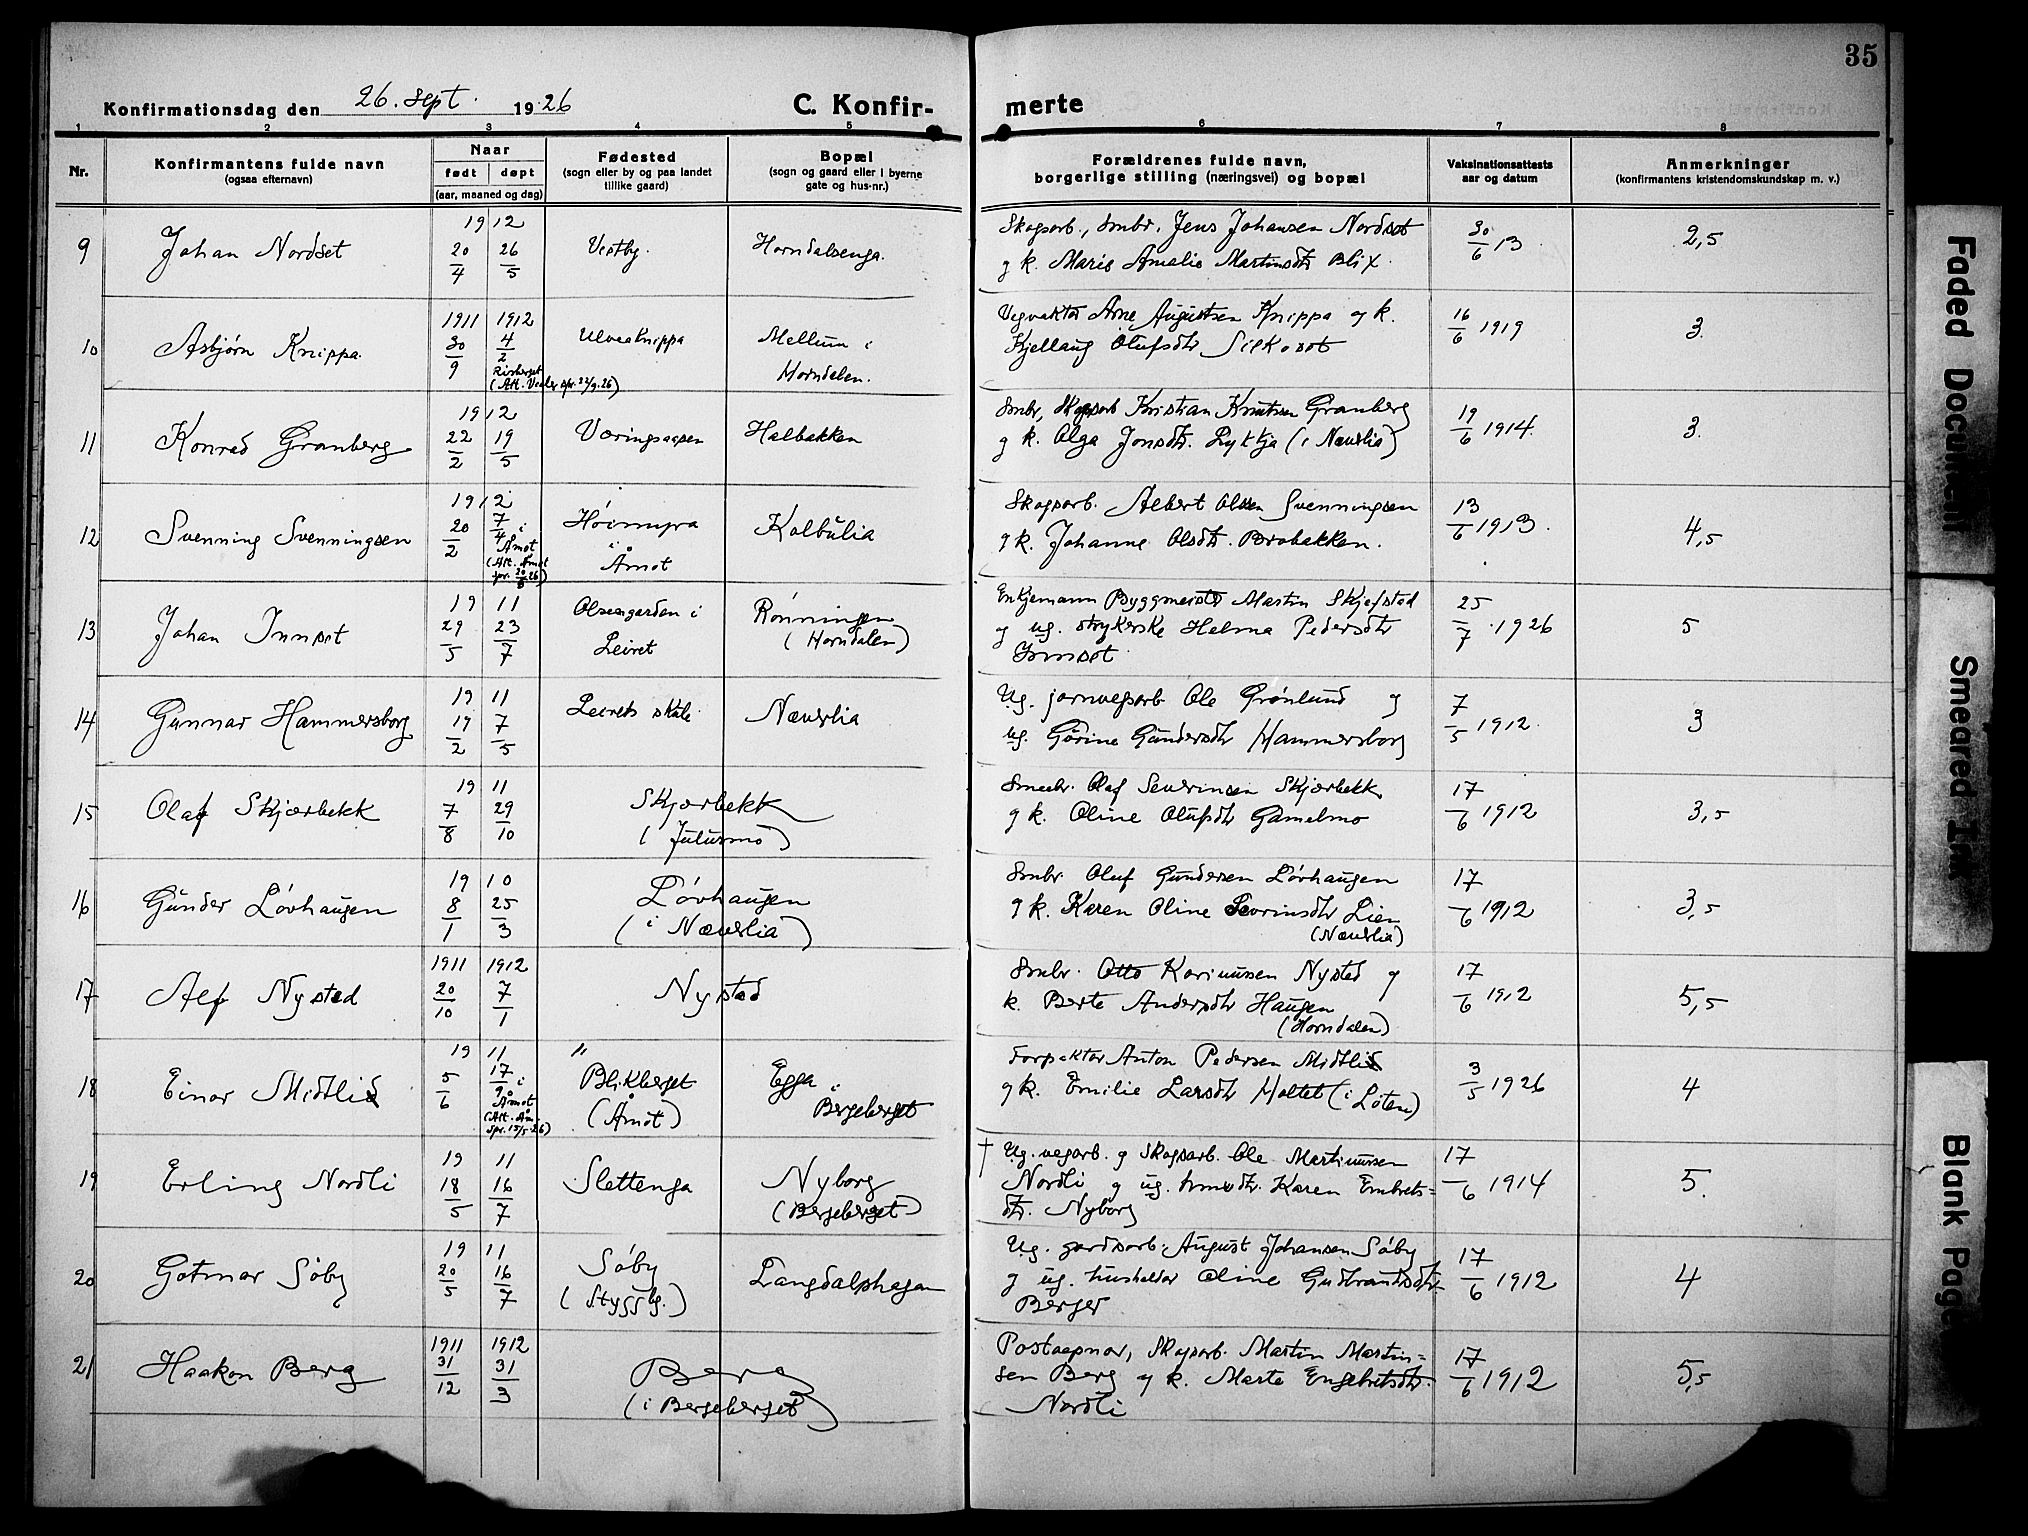 35
Konfirmationsdag den 26. sept. 1926
C. Konfir-
merte
1 2 3 4 5 6 7 8
Nr.
Konfirmantens fulde navn
(ogsaa efternavn)
Naar
født døpt
(aar, maaned og dag)
Fødested
(sogn eller by og paa landet
tillike gaard)
Bopæl
(sogn og gaard eller i byerne
gate og hus-nr.)
Forældrenes fulde navn,
borgerlige stilling (næringsvei) og bopæl
Vaksinationsattests
aar og datum
Anmerkninger
(konfirmantens kristendomskundskap m. v.)
9 Johan Nordset
1912
20/4 26/5
Vestby.
Horndalsenga.
Skogsarb., smbr. Jens Johansen Nordset
g k. Marie Amalie Martinsdtr Blix.
30/6 13
2,5
10 Asbjørn Knippa
1911 1912
30/9 4/2
(Att. Vaaler spr. 22/9.26)
Ulvaaknippa
Mellum i
Horndalen.
Vegvakter Arne Augustsen Knippa og k.
Kjellaug Olufsdtr Silkoset
16/6 1919
3.
11 Konrad Granberg
1912
22/2 19/5
Væringsaasen
Halbakken
Smbr, Skogsarb Kristian Knutsen Granberg
g k. Olga Jonsdtr. Lykkja (i Næverlia)
19/6 1914.
3.
12 Svenning Svenningsen
1912
20/2 7/4 i
Åmot
(Att. Åmot
spr. 20/8 26)
Høimyra
i
Åmot
Kolbulia
Skogsarb. Albert Olsen Svenningsen
g k. Johanne Olsdtr. Brobakken.
13/6 1913.
4,5
13 Johan Innset
1911
29/5 23/7
Olsengarden i
Leiret
Rønningen
(Horndalen)
Enkjemann Byggmeister Martin Skjefstad
g ug. strykerske Helma Pedersdtr
Innset
25/7. 1926
5
14 Gunnar Hammersborg
1911
19/2 7/5
Leirets skole
Næverlia
Ug. jarnvegsarb Ole Grønlund g
ug. Gurine Gundersdtr Hammersborg
7/5 1912.
3
15 Olaf Skjærbekk
1911
7/8 29/10
Skjærbekk
(Julusmo)
Smbr. Olaf Severinsen Skjærbekk
g k. Oline Olufsdtr Gamelmo
17/6 1912
3,5
16 Gunder Løvhaugen
1910
8/1 25/3
Løvhaugen
(i Næverlia)
Smbr Oluf Gundersen Løvhaugen
g k. Karen Oline Sevrinsdtr Lien
(Næverlia)
17/6 1912
3,5
17 Alf Nystad
1911 1912
20/10 7/1
Nystad
Smbr. Otto Karinussen Nystad g
k. Berte Andersdtr Haugen
(Horndalen)
17/6 1912
5,5
18 Einar Midtlie
1911
5/6 17/9 i
Åmot
(Att. Åm-
spr. 15/5 26)
"
Blikberget
(Åmot)
Egga i
Bergeberget
Forpakter Anton Pedersen Midtlie
g k. Emilie Larsdtr Holtet (i Løten)
3/5 1926
4
19 Erling Nordli
1911
18/5 16/7
Slettenga
Nyborg
(Bergeberget)
† Ug. vegarb. g Skogsarb. Ole Martinussen
Nordli g ug. Karen Embrets=
dtr. Nyborg
17/6 1914
5.
20 Gotmar Søby
1911
20/5 16/7
Søby
(Styggbg.)
Langdalshagen
Ug. gardsarb. August Johansen Søby
g ug. husholder Oline Gudbrandsdtr
Berger
17/6 1912
4
21 Haakon Berg
1911 1912
31/12 31/3
Berg
(i Bergeberget)
Postaapnar, Skogsarb. Martin Martin=
sen Berg g k. Marte Engebretsdtr.
Nordli
17/6 1912
5,5
Faded Document
Smeared Ink
Blank Page